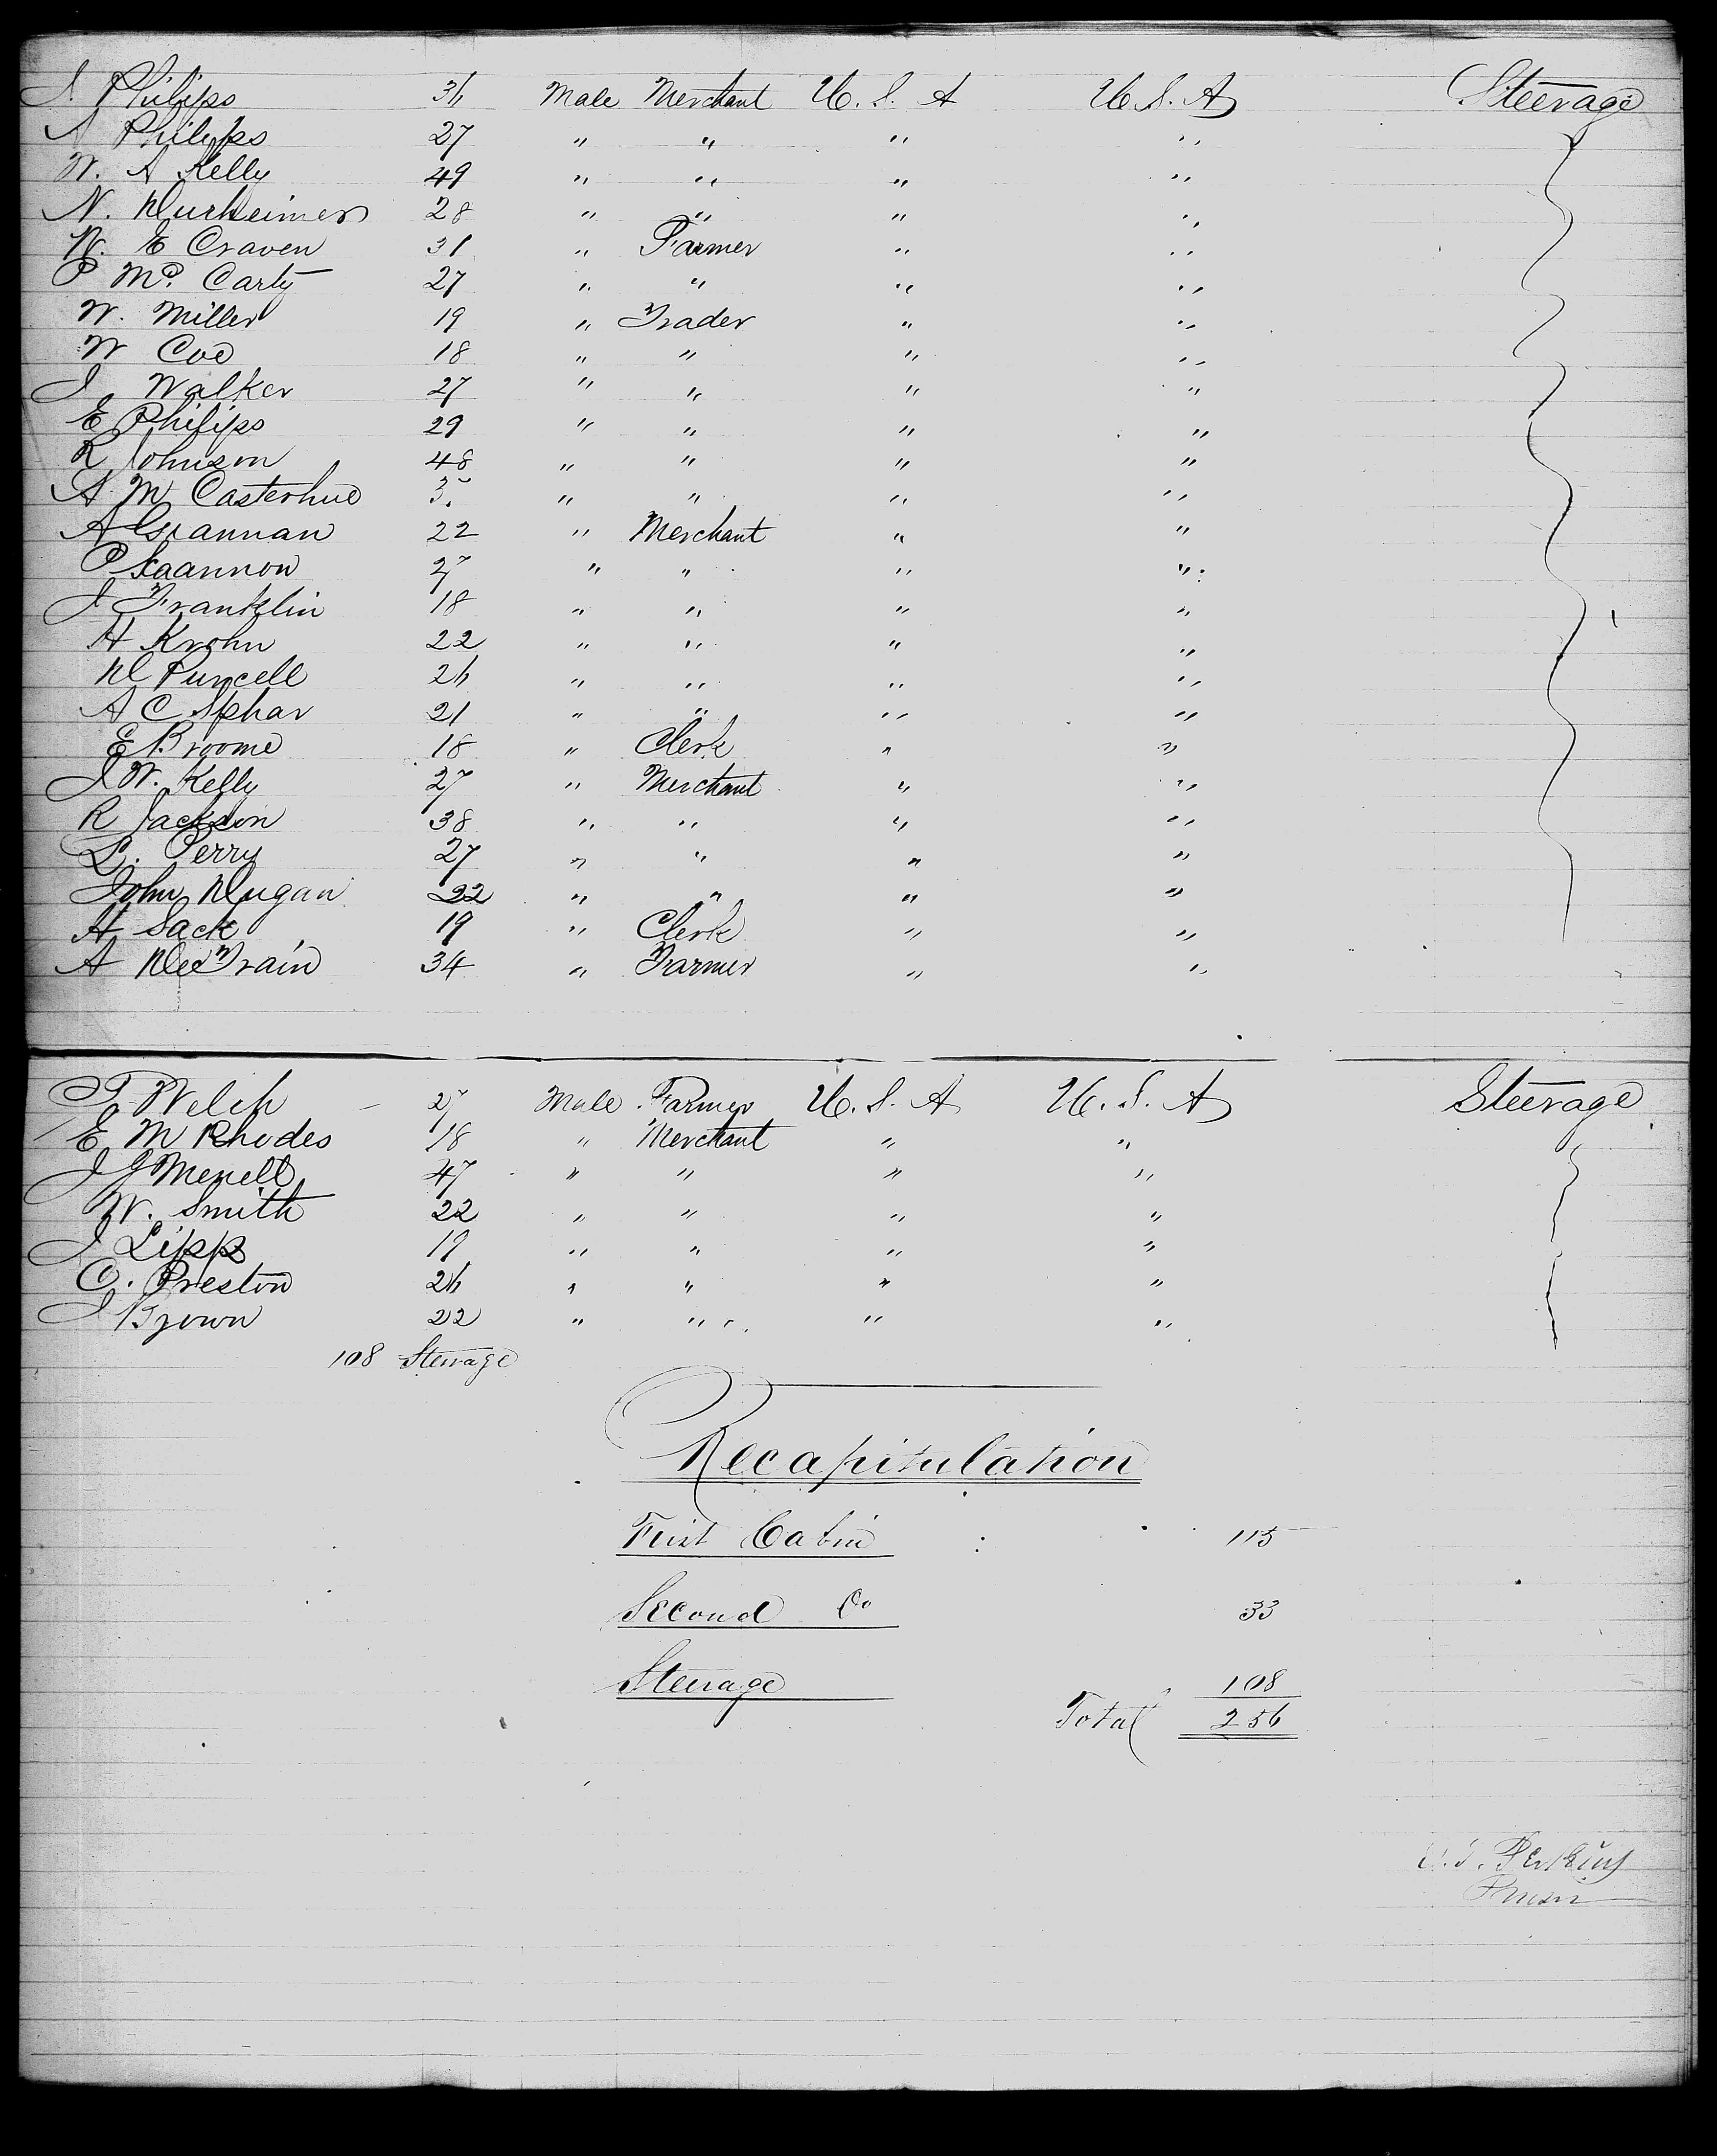 J. Philips 36 Male Merchant U. S. A U. S. A Steerage
A Philips 27 " " " "
W. A Kelly 49 " " " "
N. Durheimer 28 " " " "
E Craven 31 " Farmer " "
P Mc. Carty 27 " " " "
W. Miller 19 " Trader " "
W Coe 18 " " " "
J Walker 27 " " " "
E Philips 29 " " " "
R Johnson 48 " " " "
A. M Casterhue " " " "
A Grannan 22 " Merchant " "
P 27 " " " "
J Franklin 18 " " " "
H Krohn 22 " " " "
D Purcell 26 " " " "
A C Sphar 21 " " " "
E Broome 18 " Clerk " "
J W. Kelly 27 " Merchant " "
R Jackson 38 " " " "
L. Perry 27 " " " "
John Dugan 22 " " " "
H Sack 19 " Clerk " "
A De Train 34 " Farmer " "
T Welch 27 Male Farmer U. S. A U. S. A Steerage
E M Rhodes 18 " Merchant " "
J G Merrell 47 " " " "
W. Smith 22 " " " "
J Lipp 19 " " " "
C. Preston 26 " " " "
J Brown 22 " " " "
108 Steerage
Recapitulation
First Cabin 115
Second Do 33
Steerage 108
Total 256
Perkins
Purser